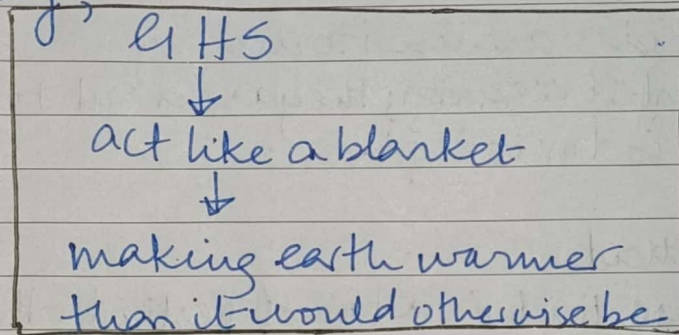 GHS
↓
act like a blanket
↓
making earth warmer
than it would otherwise be